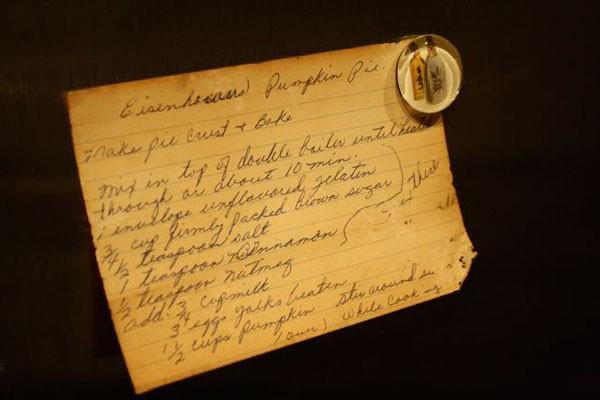 Eisenhowers Pumpkin Pie.
Make pie crust + Bake
Mix in top of double boiler until heated
through or about 10 min.
1 envelope unflavored gelatin
3/4 cup firmly packed brown sugar
1/2 teaspoon salt
1 teaspoon Cinnamon
1/2 teaspoon nutmeg
add: 3/4 cup milk
3 eggs yolks beaten
1 1/2 cups pumpkin stir around
(over) while cooking